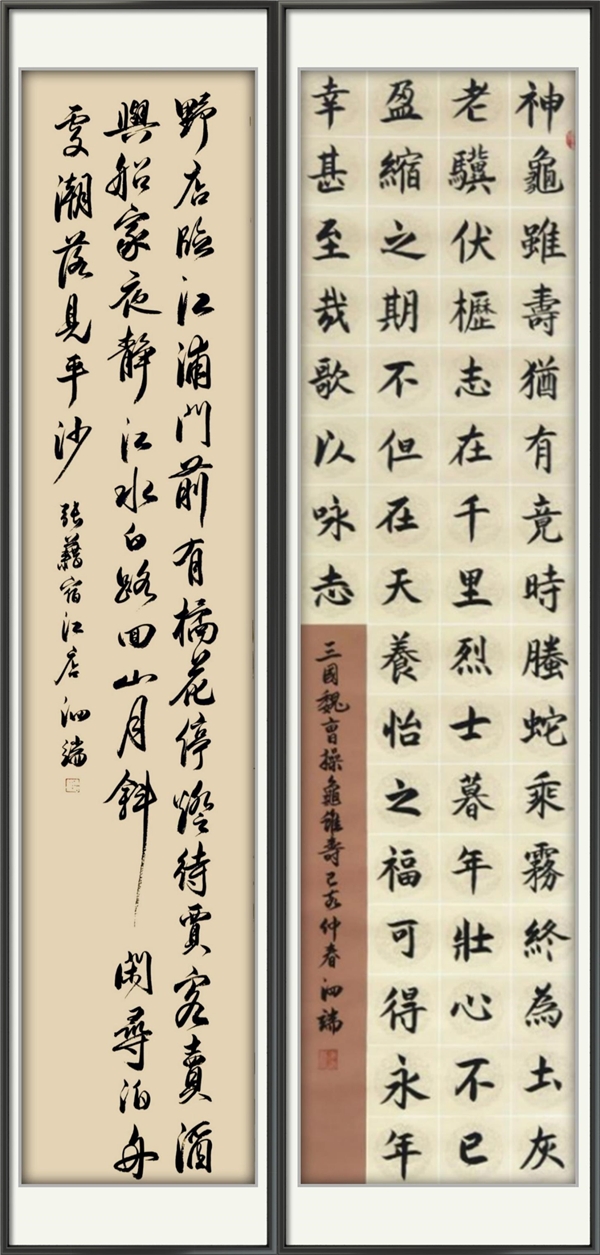 神龜雖壽猶有竟時螣蛇乘霧終為土灰
老驥伏櫪志在千里烈士暮年壯心不已
盈縮之期不但在天養怡之福可得永年
幸甚至哉歌以咏志
三國魏曹操龜雖壽己亥仲春泗端
野店臨江浦門前有橘花停燈待賈客賣酒
與船家夜靜江水白路回山月斜閑尋泊舟
處潮落見平沙
張藉宿江店泗端